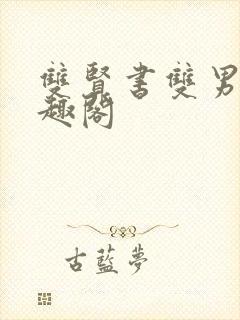 雙賢書雙男
趣閣
古藍夢